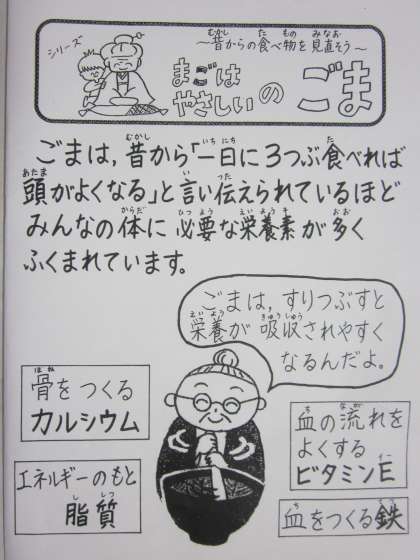 シリーズ
～昔からの食べ物を見直そう～
まごは
やさしいの ごま
ごまは,昔から「一日に3つぶ食べれば
頭がよくなる」と言い伝えられているほど
みんなの体に必要な栄養素が多く
ふくまれています。
ごまは,すりつぶすと
栄養が吸収されやすく
なるんだよ。
骨をつくる
カルシウム
エネルギーのもと
脂質
血の流れを
よくする
ビタミンE
血をつくる鉄